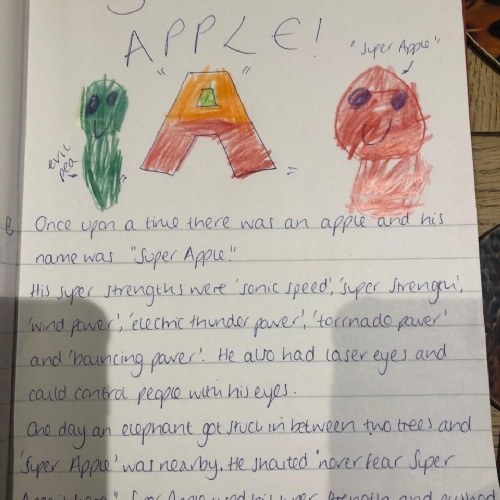 APPLE!
"Super Apple"
"A"
evil pea
Once upon a time there was an apple and his
name was "Super Apple."
His super strengths were 'sonic speed', 'super strength',
'wind power', 'electric thunder power', 'torrnado power'
and 'bouncing power'. He also had laser eyes and
could control people with his eyes.
One day an elephant got stuck in between two trees and
'Super Apple' was nearby. He shouted "never fear Super